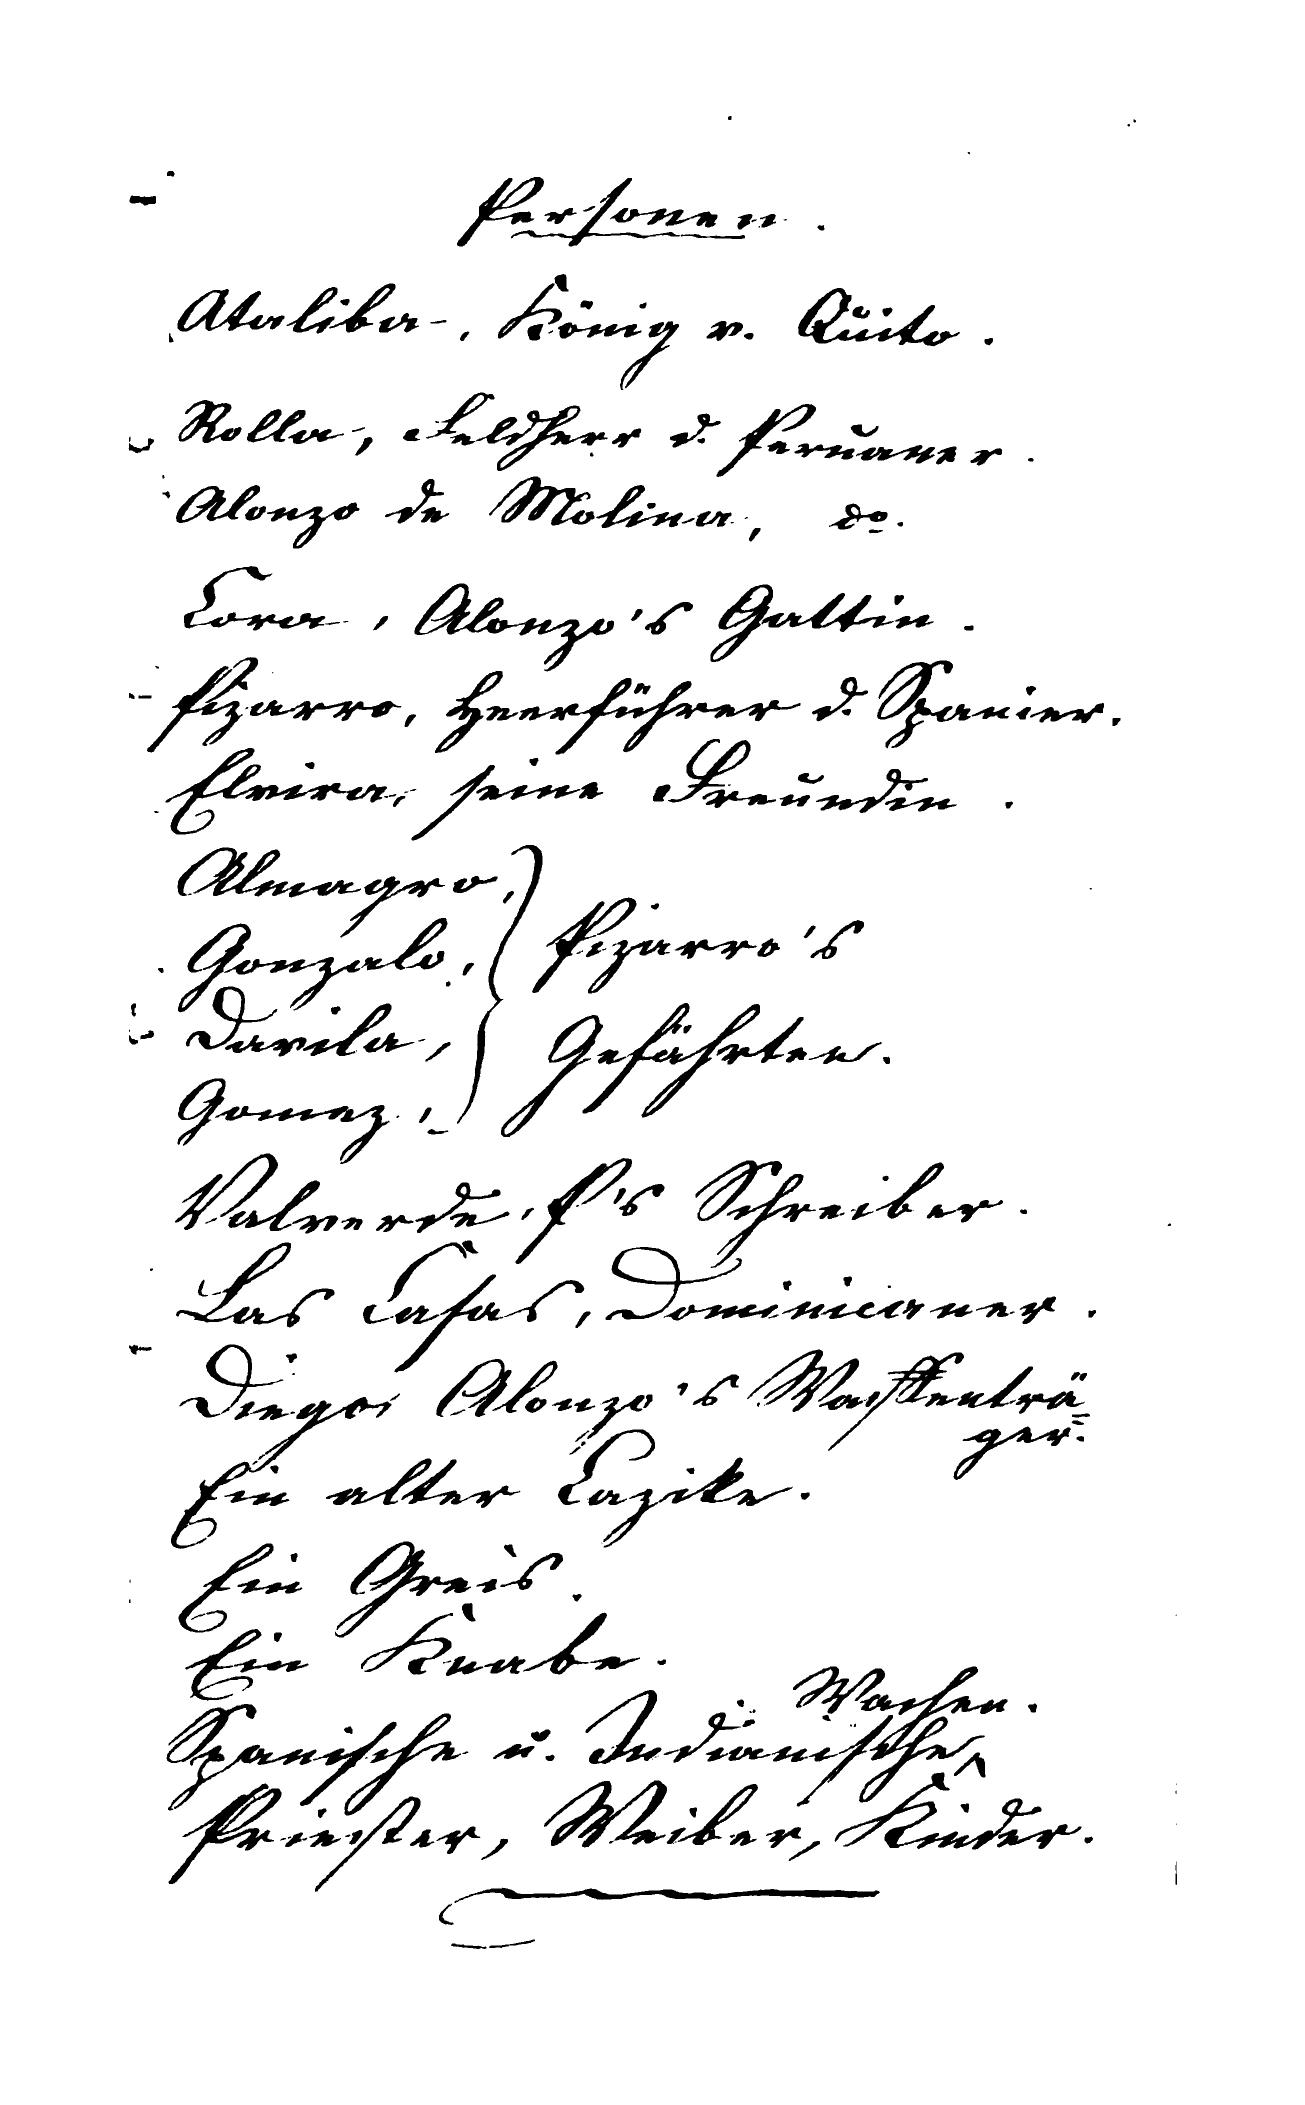 Personen.
Ataliba, König v. Quito.
Rolla, Feldherr d. Peruaner.
Alonzo de Molina, do.
Cora, Alonzo's Gattin.
Pizarro, Heerführer d. Spanier.
Elvira, seine Freundin.
Almagro,
Gonzalo, Pizarro's
Davila, Gefährten.
Gomez,
Valverde, P's Schreiber.
Las Casas, Dominicaner.
Diego, Alonzo's Waffenträ=
ger.
Ein alter Cazike.
Ein Greis.
Ein Knabe.
Wachen.
Spanische u. Indianische
Priester, Weiber, Kinder.